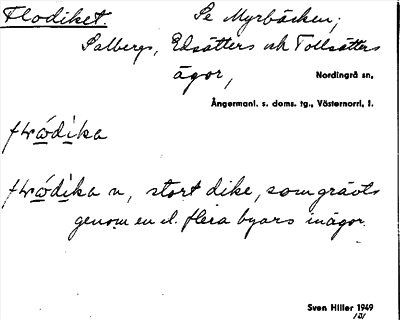 Flodiket. Se Myrbäcken;
Salbergs, Edsätters och Tollsätters
ägor, Nordingrå sn,
Ångermanl. s. doms. tg., Västernorrl. l.
n, stort dike, som grävts
genom en el. flera byars inägor.
Sven Hiller 1949